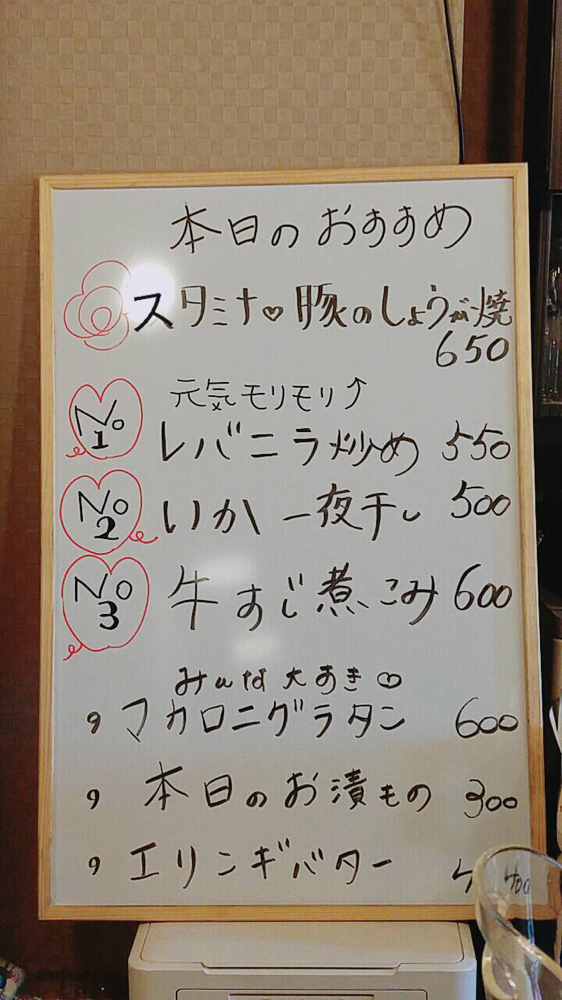 本日のおすすめ
スタミナ♡豚のしょうが焼
650
元気モリモリ↑
No 1 レバニラ炒め 550
No 2 いか一夜干し 500
No 3 牛すじ煮こみ 600
みんな大すき♡
マカロニグラタン 600
本日のお漬もの 300
エリンギバター 400